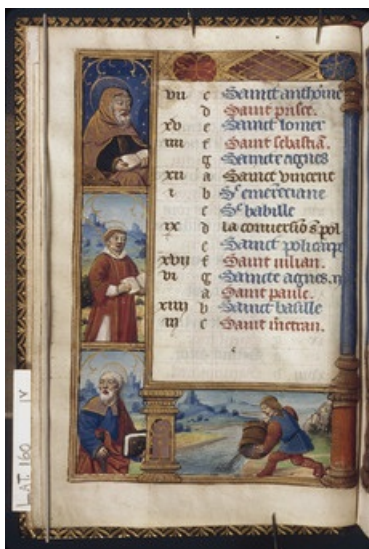 vii c Sainct anthoine
d Saint prisce.
xv e Sainct lomer
iiii f Saint sebastiā.
g Saincte agnes
xii a Sainct vincent
i b Sᵉ emerēciane
c Sᵗ babille
ix d La conversiō s pol
e Sainct policarpe
xvii f Saint iulian.
vi g Saincte agnes.
a Saint paule.
xiiii b Sainct basille
iii c Saint metran.
LAT. 160 1V